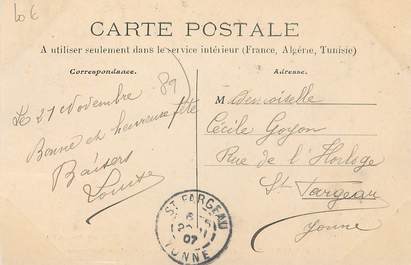 10 €
CARTE POSTALE
A utiliser seulement dans le service intérieur (France, Algérie, Tunisie)
Correspondance.
Adresse.
Le 21 Novembre
Bonne et heureuse fête
Baisers
Louise
Mademoiselle
Cécile Goyon
Rue de l'Horloge
St Fargeau
Yonne
ST FARGEAU
07
YONNE